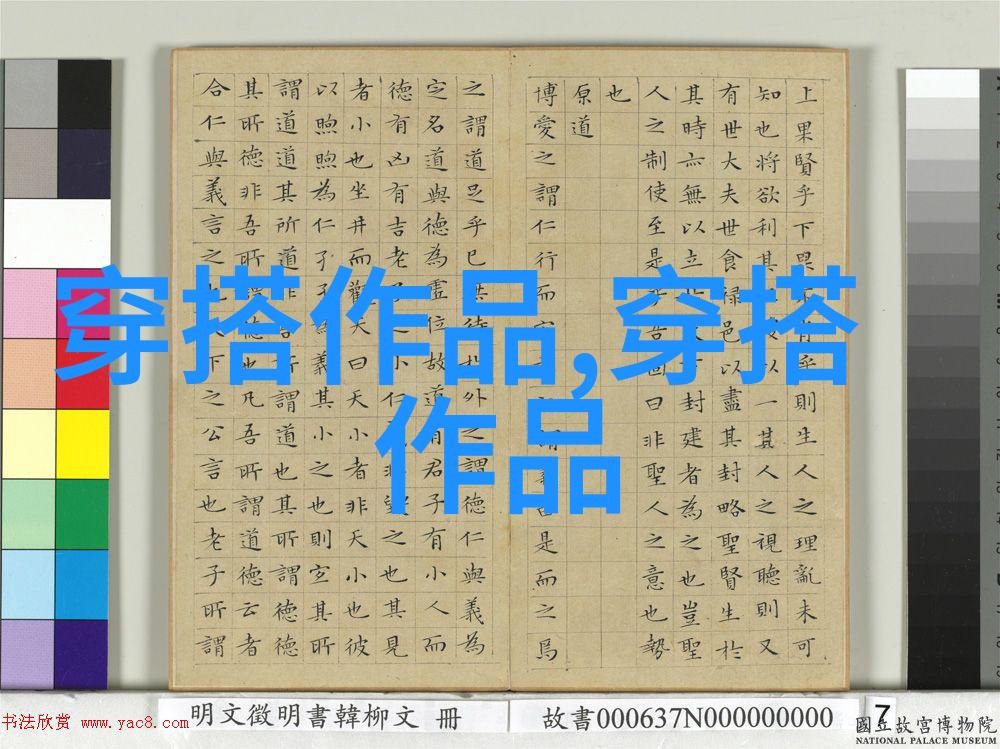 上果賢乎下不肖乎則生人之理亂未可
知也將欲利其以一其人之視聽則又
有世大夫世食祿邑以盡其封略聖賢生於
其時亦無以立下封建者為之也豈聖
人之制使至是乎吾固曰非聖人之意也勢
也
原道
博愛之謂仁行而是而之焉
之謂道足乎己無待於外之謂德仁與義為
定名道與德為虛位故道有君子有小人而
德有凶有吉老之小仁非毀之也其見
者小也坐井而觀天曰天小者非天小也彼
以煦煦為仁孑孑為義其小之也則宜其所
謂道道其所道非吾所謂道也其所謂德德
其所德非吾所謂德也凡吾所謂道德云者
合仁與義言之也天下之公言也老子所謂
穿搭作品,穿搭
作品
明文徵明書韓柳文 冊
故書000637N000000000
7
書法欣賞 www.yac8.com
國立故宮博物院
NATIONAL PALACE MUSEUM